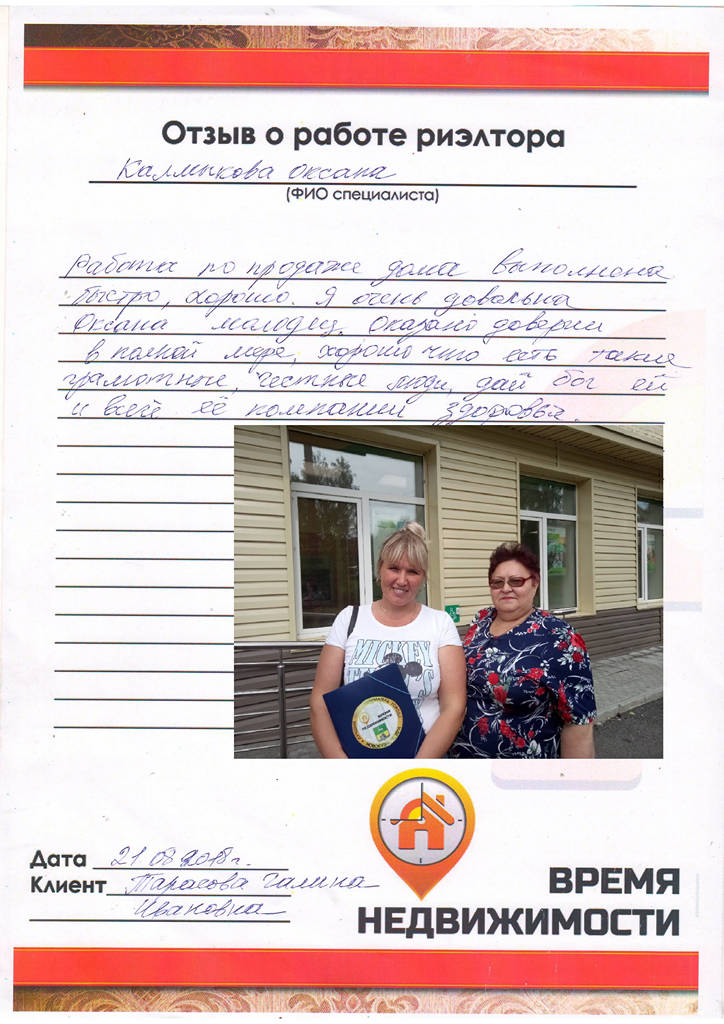 Отзыв о работе риэлтора
Калмыкова Оксана
(ФИО специалиста)
Работа по продаже дома выполнена
быстро, хорошо. Я очень довольна
Оксана молодец. Оказано доверии
в полной мере, хорошо что есть такие
грамотные, честные люди, дай бог ей
и всей её компании здоровья.
MICKEY
ВРЕМЯ
НЕДВИЖИМОСТИ
Дата 21.08.2018г.
Клиент Тарасова Галина
Ивановна
ВРЕМЯ
НЕДВИЖИМОСТИ